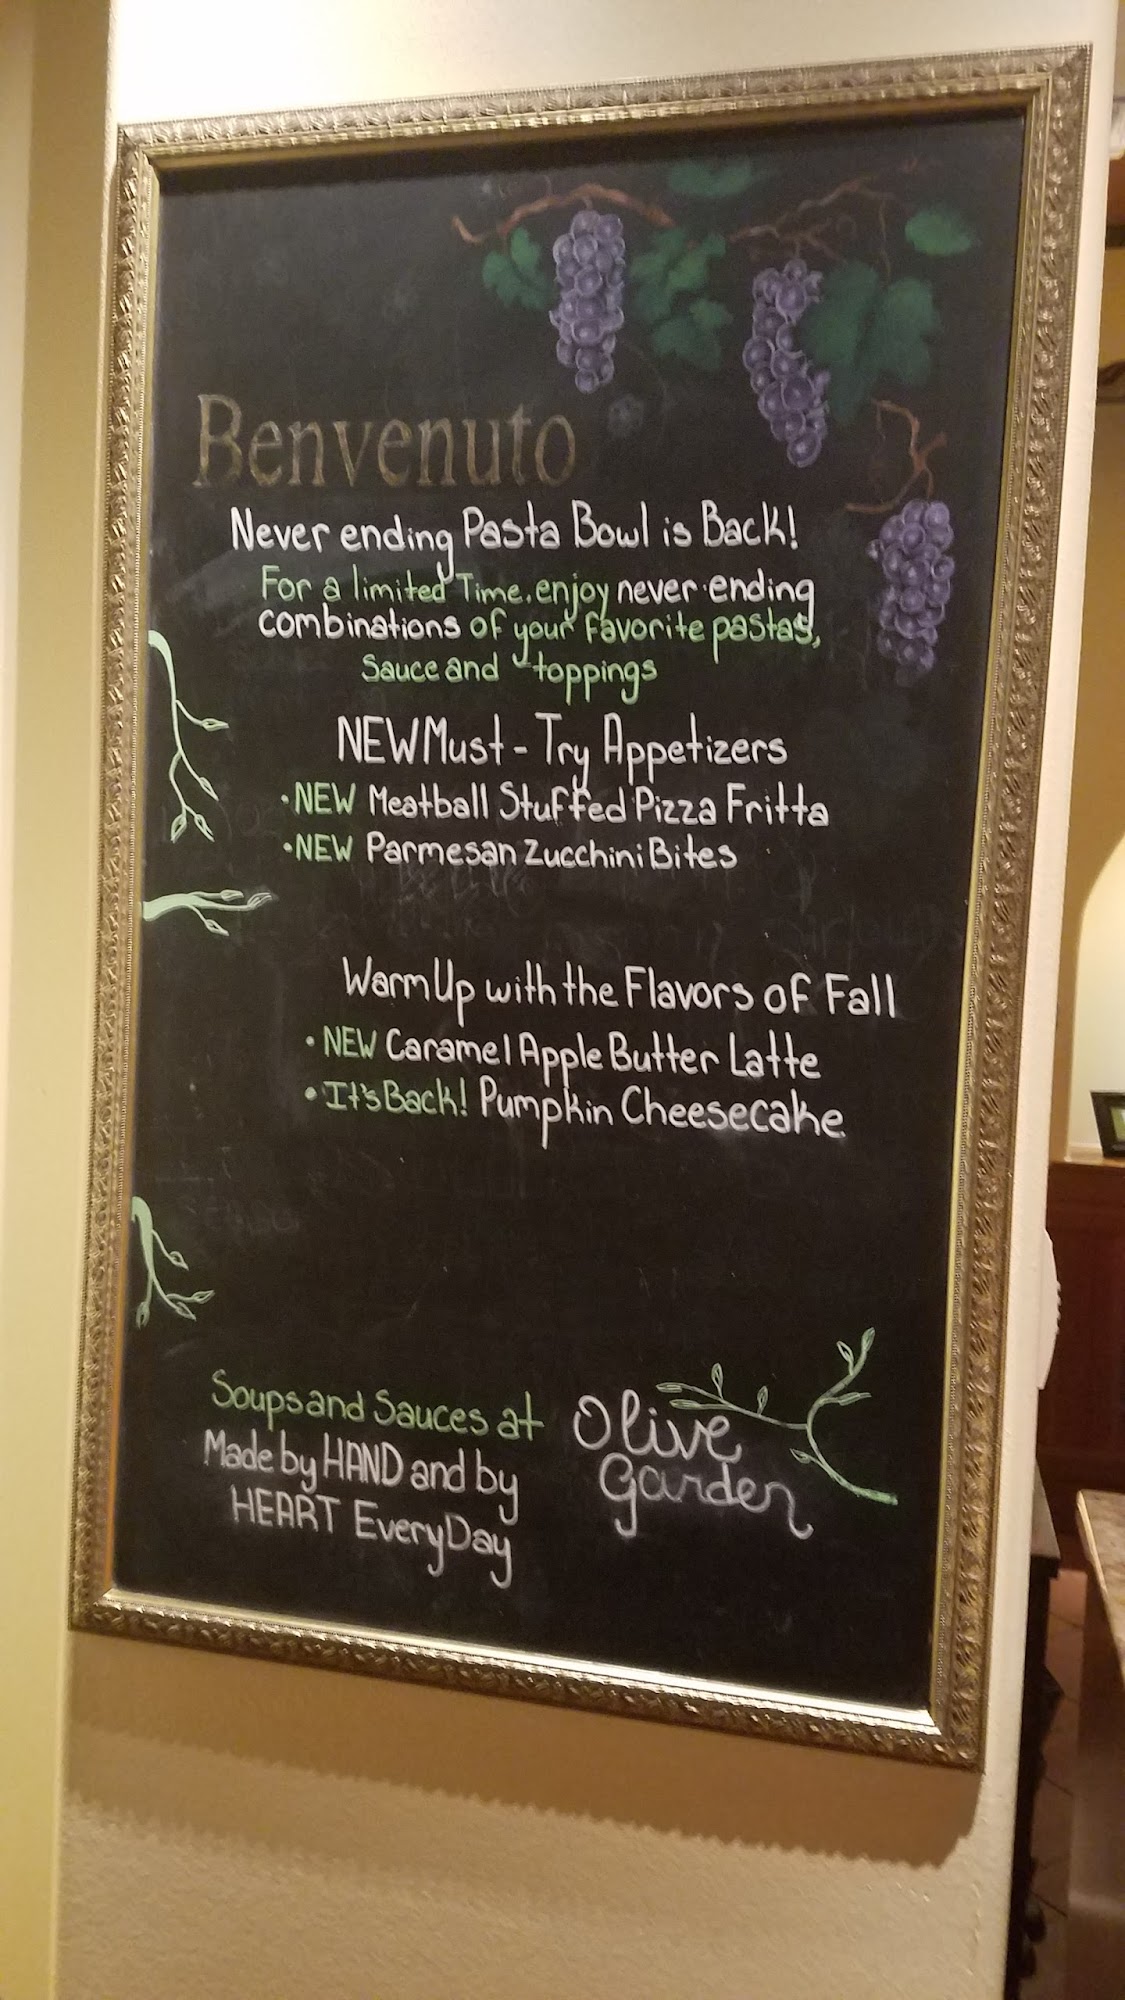 Benvenuto
Never ending Pasta Bowl is Back!
For a limited Time, enjoy never ending
combinations of your favorite pastas,
Sauce and toppings
NEW Must-Try Appetizers
• NEW Meatball Stuffed Pizza Fritta
• NEW Parmesan Zucchini Bites
Warm Up with the Flavors of Fall
• NEW Caramel Apple Butter Latte
• It's Back! Pumpkin Cheesecake
Soups and Sauces at
Made by HAND and by
HEART EveryDay
Olive
Garden